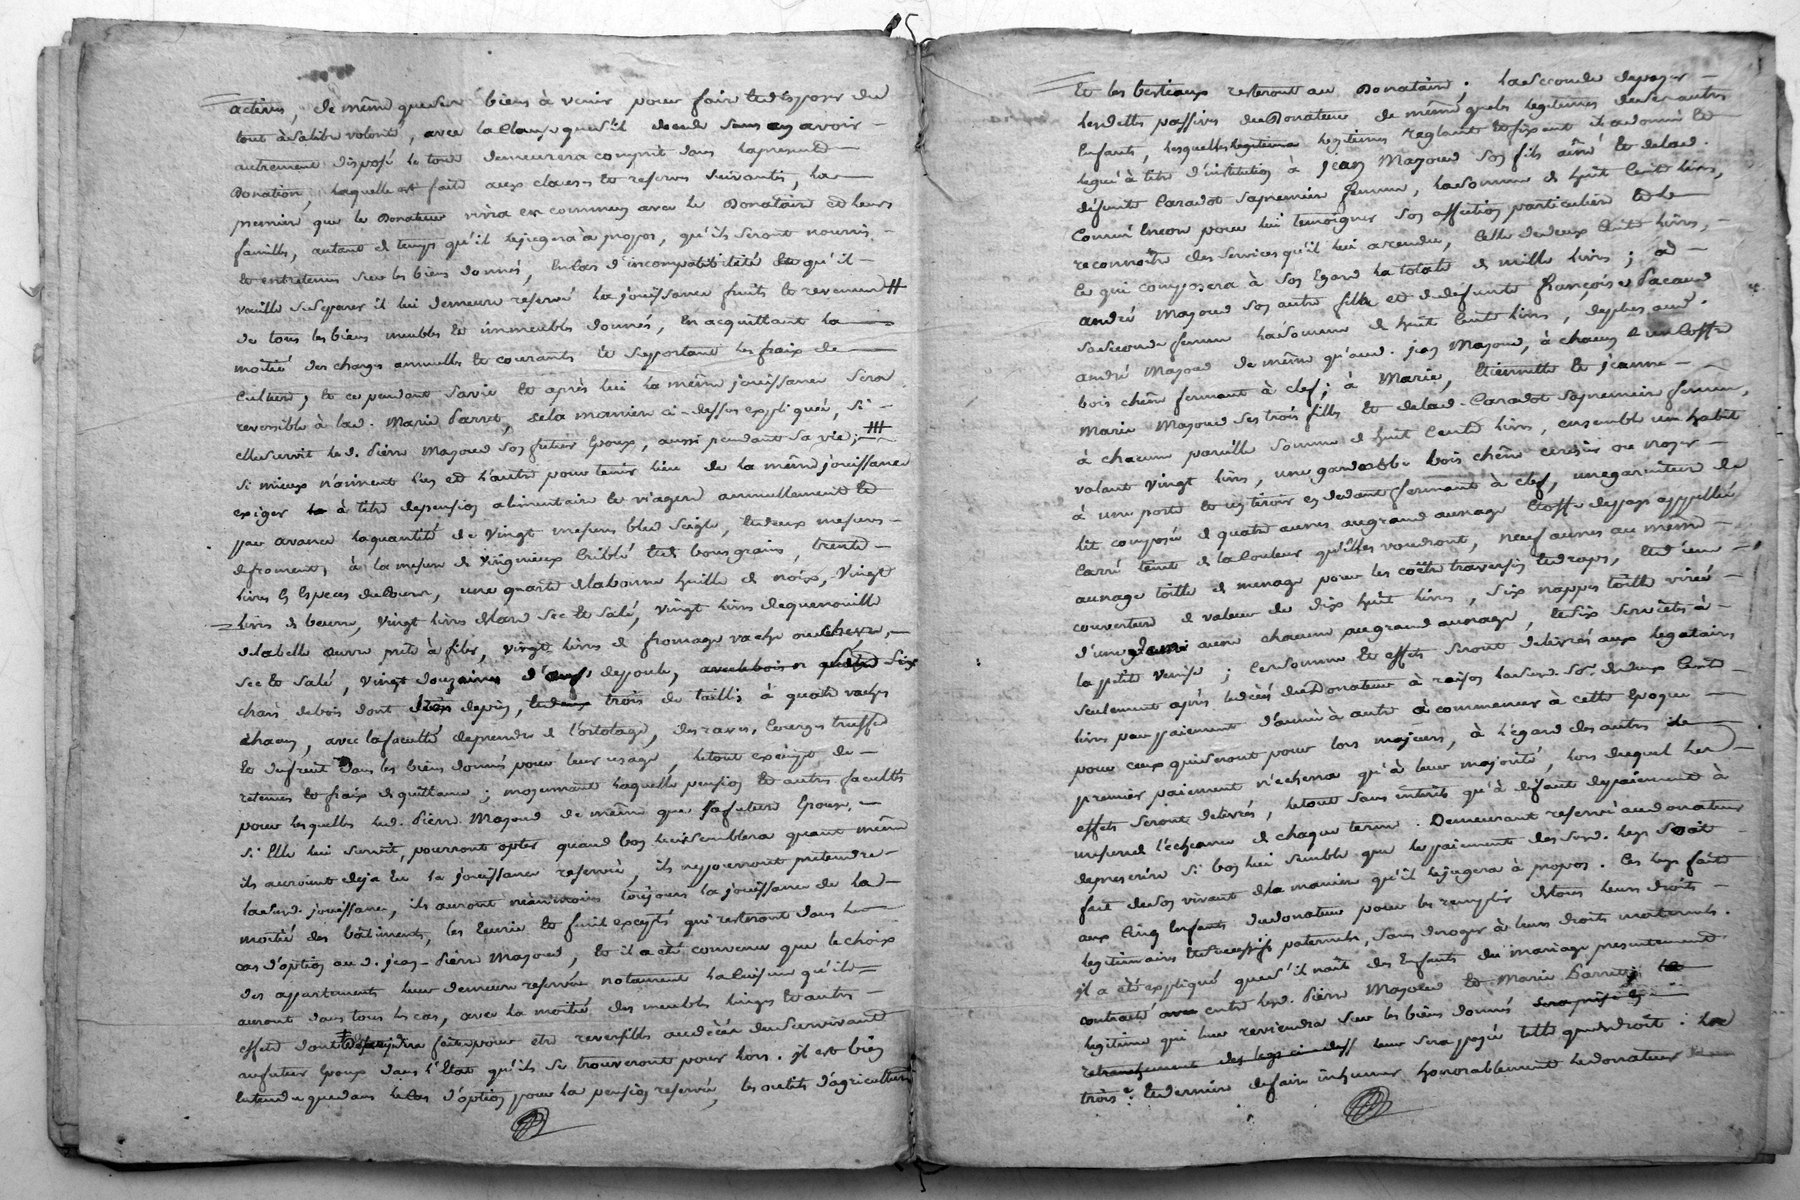 15
actives, de même que ses biens à venir pour faire et disposer du
tout à sa libre volonté, avec la clause que s'il decede sans en avoir
autrement disposé le tout demeurera comprit dans la presente
Donation, laquelle est faite aux clauses et reserves suivantes, la
premiere que le Donateur vivra en commun avec le Donataire et leurs
familles, autant de temps qu'il le jugera à propos, qu'ils seront nourris
et entretenus sur les biens donnés, en cas d'incompatibilité et qu'il
veuille se separer il lui demeure reservé la jouissance fruits et revenus
de tous les biens meubles et immeubles donnés, en acquittant la
moitié des charges annuelles et courants et supportant les fraix de
culture, et ce pendant sa vie et après lui la même jouissance sera
reversible à lad. Marie Parret, de la maniere ci-dessus expliquée, si
elle survit led. Pierre Mayoud son futur Epoux, aussi pendant sa vie;
si mieux n'aiment l'un et l'autre pour tenir lieu de la même jouissance
exiger à titre de pension alimentaire et viagere annuellement et
par avance la quantité de vingt mesures bled seigle, et deux mesures
de froment, à la mesure de criblé et de bons grains, trente
livres en especes une quarte de la bonne huille de noix, vingt
livres de beurre, vingt livres de lard sec et salé, vingt livres de quenouille
de la belle œuvre prete à filer, vingt livres de fromage vache ou chevre,
sec et salé, vingt douzaines d'œufs de poule, six
chars de bois dont trois de pin, trois de taillis à quatre vaches
chacun, avec la faculté de prendre de l'ortolage, des raves, courges truffes
et du fruit dans les biens donnés pour leur usage, le tout exempt de
retenues et fraix de quittance; moyennant laquelle pension et autres facultés
pour lesquelles led. Pierre Mayoud de même que sa future Epouse,
si Elle lui survit, pourront opter quand bon leur semblera quant même
ils auroient deja eu la jouissance reservée, ils ne pourront pretendre
lasusd. jouissance, ils auront néanmoins toujours la jouissance de la
moitié des bâtiments, les Ecurie et fenil exceptés qui resteront dans le
cas d'option aud. jean-Pierre Mayoud, et il a été convenu que le choix
des appartements leur demeure reservé notament la cuisine qu'ils
auront dans tous les cas, avec la moitié des meubles linges et autres
effets dont fait pour etre reversibles au décès du survivant
au futur Epoux dans l'Etat qu'ils se trouveront pour lors. il est bien
Entendu que dans le cas d'option pour la pension reservée, les outils d'agriculture
et les bestiaux resteront au Donataire; la seconde de payer
les dettes passives du Donateur de même que les legitimes de ses autres
Enfants, lesquelles legitimes reglant et fixant il a donné et
legué à titre d'institution à jean Mayoud son fils ainé et de lad.
défunte Caradot sa premiere femme, la somme de huit Cents livres,
comme Encore pour lui temoigner son affection particuliere et le
reconnoître des services qu'il lui a rendu, celle de deux Cents livres,
ce qui composera à son Egard la totale de mille livres; à
andré Mayoud son autre fils et de defunte françoise Pacaud
sa seconde femme la somme de huit Cents livres, de plus aud.
andré Mayoud de même qu'aud. jean Mayoud, à chacun un coffre
bois chêne fermant à clef; à Marie, Etiennette et jeanne
Marie Mayoud ses trois filles et de lad. Caradot sa premiere femme,
à chacune pareille somme de huit Cents livres, ensemble un habit
valant vingt livres, une garderobbe bois chêne cerisier ou noyer
à une porte et un tiroir en dedans fermant à clef, une garniture de
lit composée de quatre aunes au grand aunage Etoffe du pays appellée
Carré teint de la couleur qu'elles voudront, neuf aunes au même
aunage toille de menage pour les coëtre traversin et draps, et d'une
couverture de valeur de dix huit livres, six nappes toille
d'une aune chacune au grand aunage, et six serviettes à
la petite Venise; ces somme et effets seront delivrés aux legataires
seulement après le décès du Donateur à raison lasusd. de deux Cents
livres par paiement d'année à autre à commencer à cette Epoque
pour ceux qui seront pour lors majeurs, à l'égard des autres le
premier paiement n'echerra qu'à leur majorité, lors duquel les
effets seront delivrés, le tout sans interets qu'à défaut de paiement à
mesure de l'écheance de chaque terme. Demeurant reservé au donateur
de prescrire si bon lui semble que le paiement des susd. legs soit
fait de son vivant de la maniere qu'il le jugera à propos. Ces legs faits
aux Cinq Enfants du donateur pour les remplir de tous leurs droits
legitimaires et successifs paternels, sans deroger à leurs droits maternels.
il a été expliqué que s'il naît des Enfants du mariage presentement
contracté entre led. Pierre Mayoud et Marie Parret, la
legitime qui leur reviendra sur les biens donnés
retranchement des legs ci-dess leur sera payée telle que de droit: la
trois.e et derniere de faire inhumer honorablement le donateur